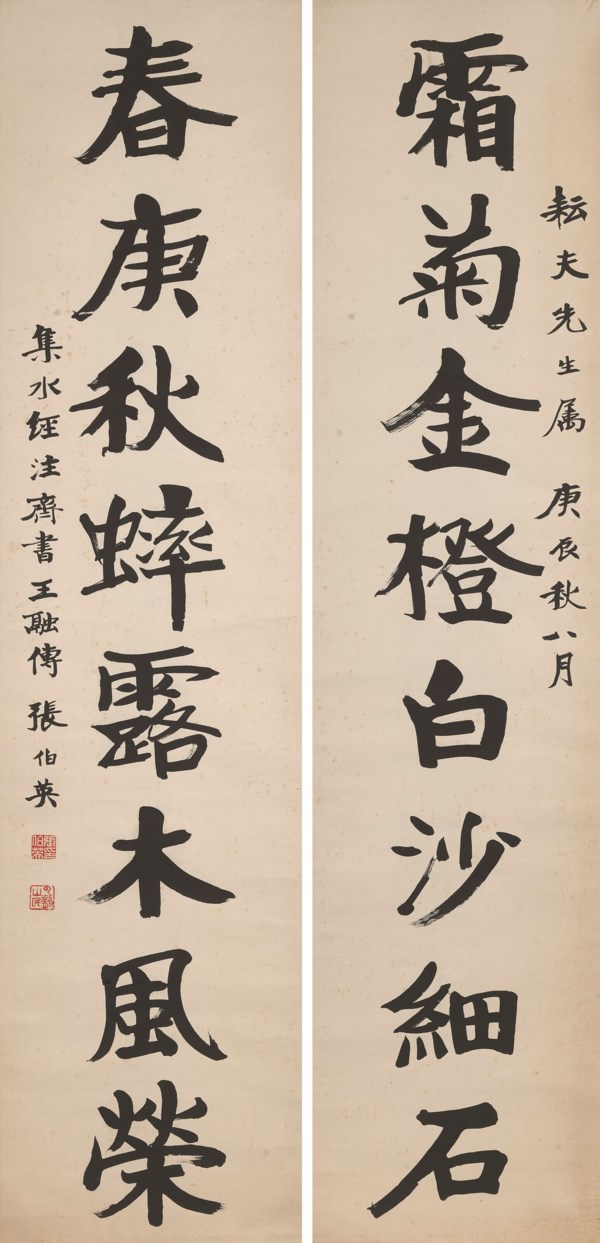 耘夫先生属 庚辰秋八月
霜菊金橙白沙細石
春庚秋蟀露木風榮
集水經注齊書王融傳 張伯英